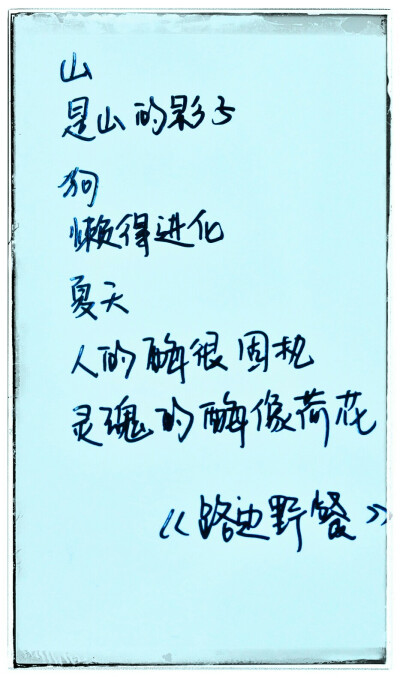 山
是山的影子
狗
懒得进化
夏天
人的酶很固执
灵魂的酶像荷花
《路边野餐》